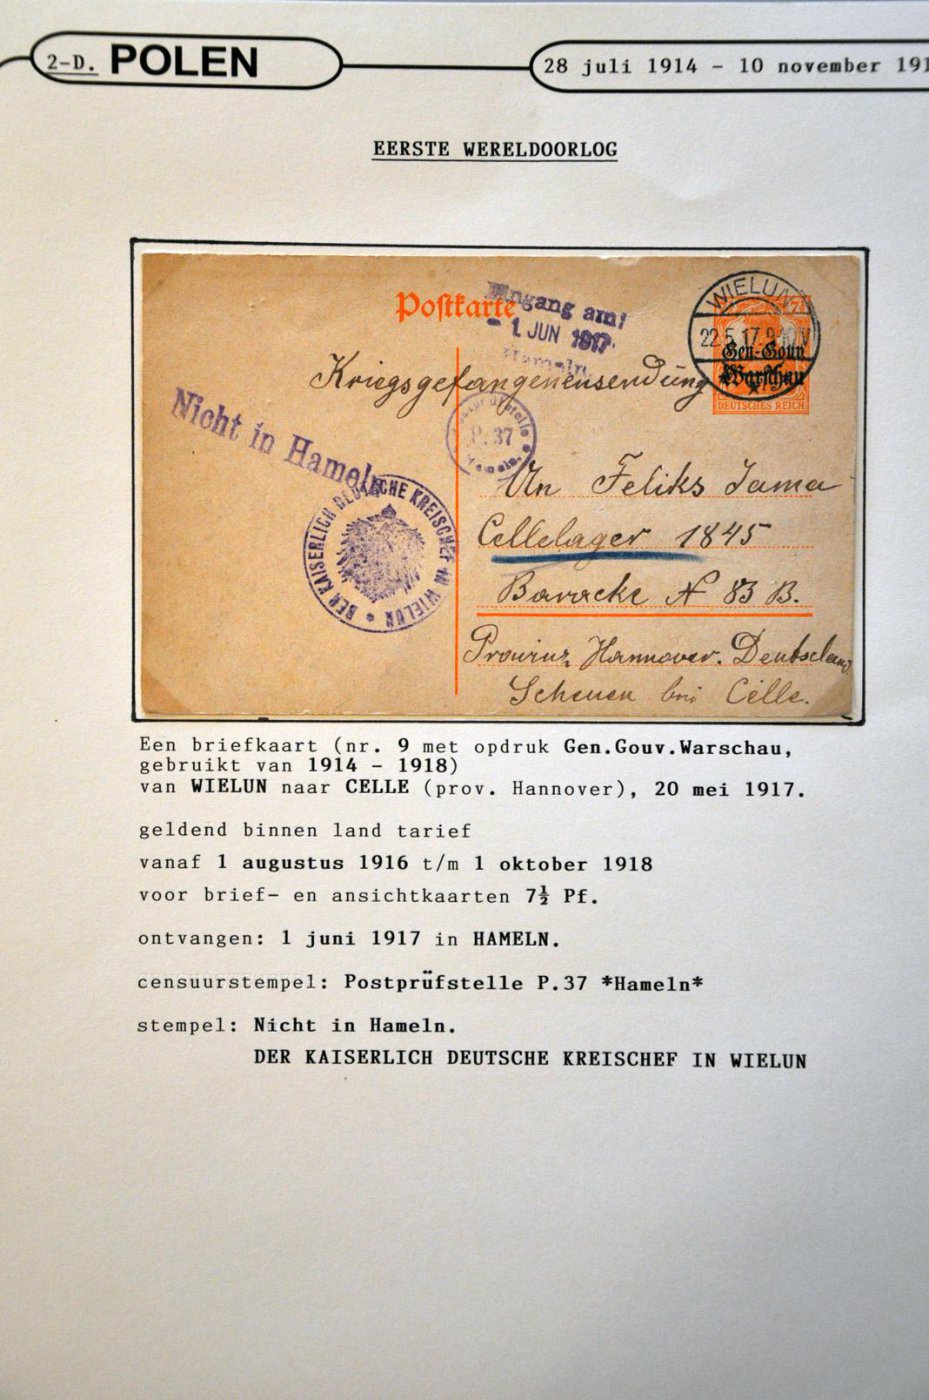 2-D. POLEN
28 juli 1914 - 10 november 191
EERSTE WERELDOORLOG
Postkarte
Eingang am:
- 1. JUN 1917
Hameln
WIELUN
22.5.17.9-10V
Gen.-Gouv.
Warschau
DEUTSCHES REICH
Kriegsgefangenensendung
Nicht in Hameln
Postprüfstelle
P. 37
Hameln.
DER KAISERLICH DEUTSCHE KREISCHEF IN WIELUN *
An Feliks Jama
Cellelager 1845
Baracke N 83 B.
Provinz Hannover. Deutschland
Scheuen bei Celle.
Een briefkaart (nr. 9 met opdruk Gen.Gouv.Warschau,
gebruikt van 1914 - 1918)
van WIELUN naar CELLE (prov. Hannover), 20 mei 1917.
geldend binnen land tarief
vanaf 1 augustus 1916 t/m 1 oktober 1918
voor brief- en ansichtkaarten 7½ Pf.
ontvangen: 1 juni 1917 in HAMELN.
censuurstempel: Postprüfstelle P.37 *Hameln*
stempel: Nicht in Hameln.
DER KAISERLICH DEUTSCHE KREISCHEF IN WIELUN